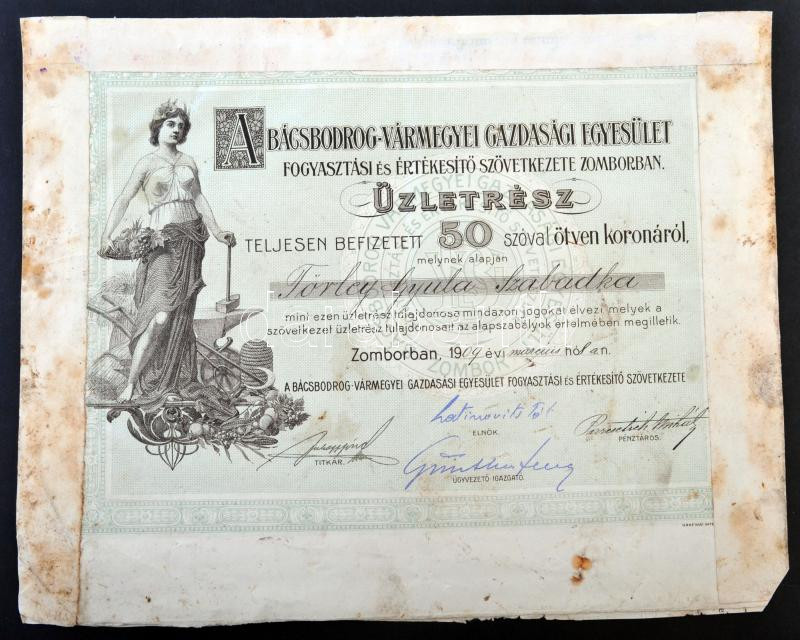 A BÁCSBODROG-VÁRMEGYEI GAZDASÁGI EGYESÜLET
FOGYASZTÁSI ÉS ÉRTÉKESITŐ SZÖVETKEZETE ZOMBORBAN.
ÜZLETRÉSZ
TELJESEN BEFIZETETT 50 szóval ötven koronáról,
melynek alapján
Törley Gyula Szabadka
mint ezen üzletrész tulajdonosa mindazon jogokat élvezi, melyek a
szövetkezet üzletrész tulajdonosait az alapszabályok értelmében megilletik.
Zomborban, 1909 évi március hó 1 án.
A BÁCSBODROG-VÁRMEGYEI GAZDASÁGI EGYESÜLET FOGYASZTÁSI ÉS ÉRTÉKESITŐ SZÖVETKEZETE
Latinovits Pál
ELNÖK.
PÉNZTÁROS.
TITKÁR.
ÜGYVEZETŐ IGAZGATÓ.